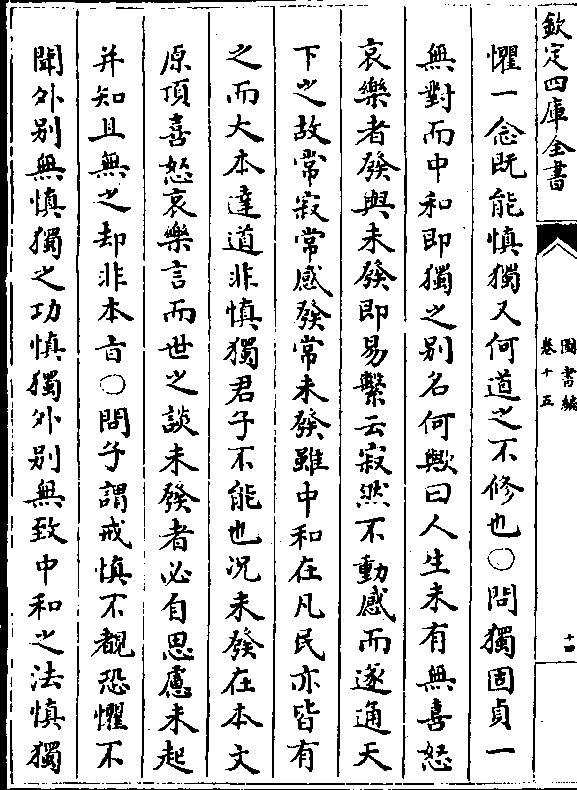 欽定四庫全書
圖書編
卷十五
十四
懼一念既能慎獨又何道之不修也○問獨固貞一
無對而中和即獨之别名何歟曰人生未有無喜怒
哀樂者發與未發即易繫云寂然不動感而遂通天
下之故常寂常感發常未發雖中和在凡民亦皆有
之而大本達道非慎獨君子不能也况未發在本文
原頂喜怒哀樂言而世之談未發者必自思慮未起
并知且無之却非本旨○問子謂戒慎不覩恐懼不
聞外别無慎獨之功慎獨外别無致中和之法慎獨